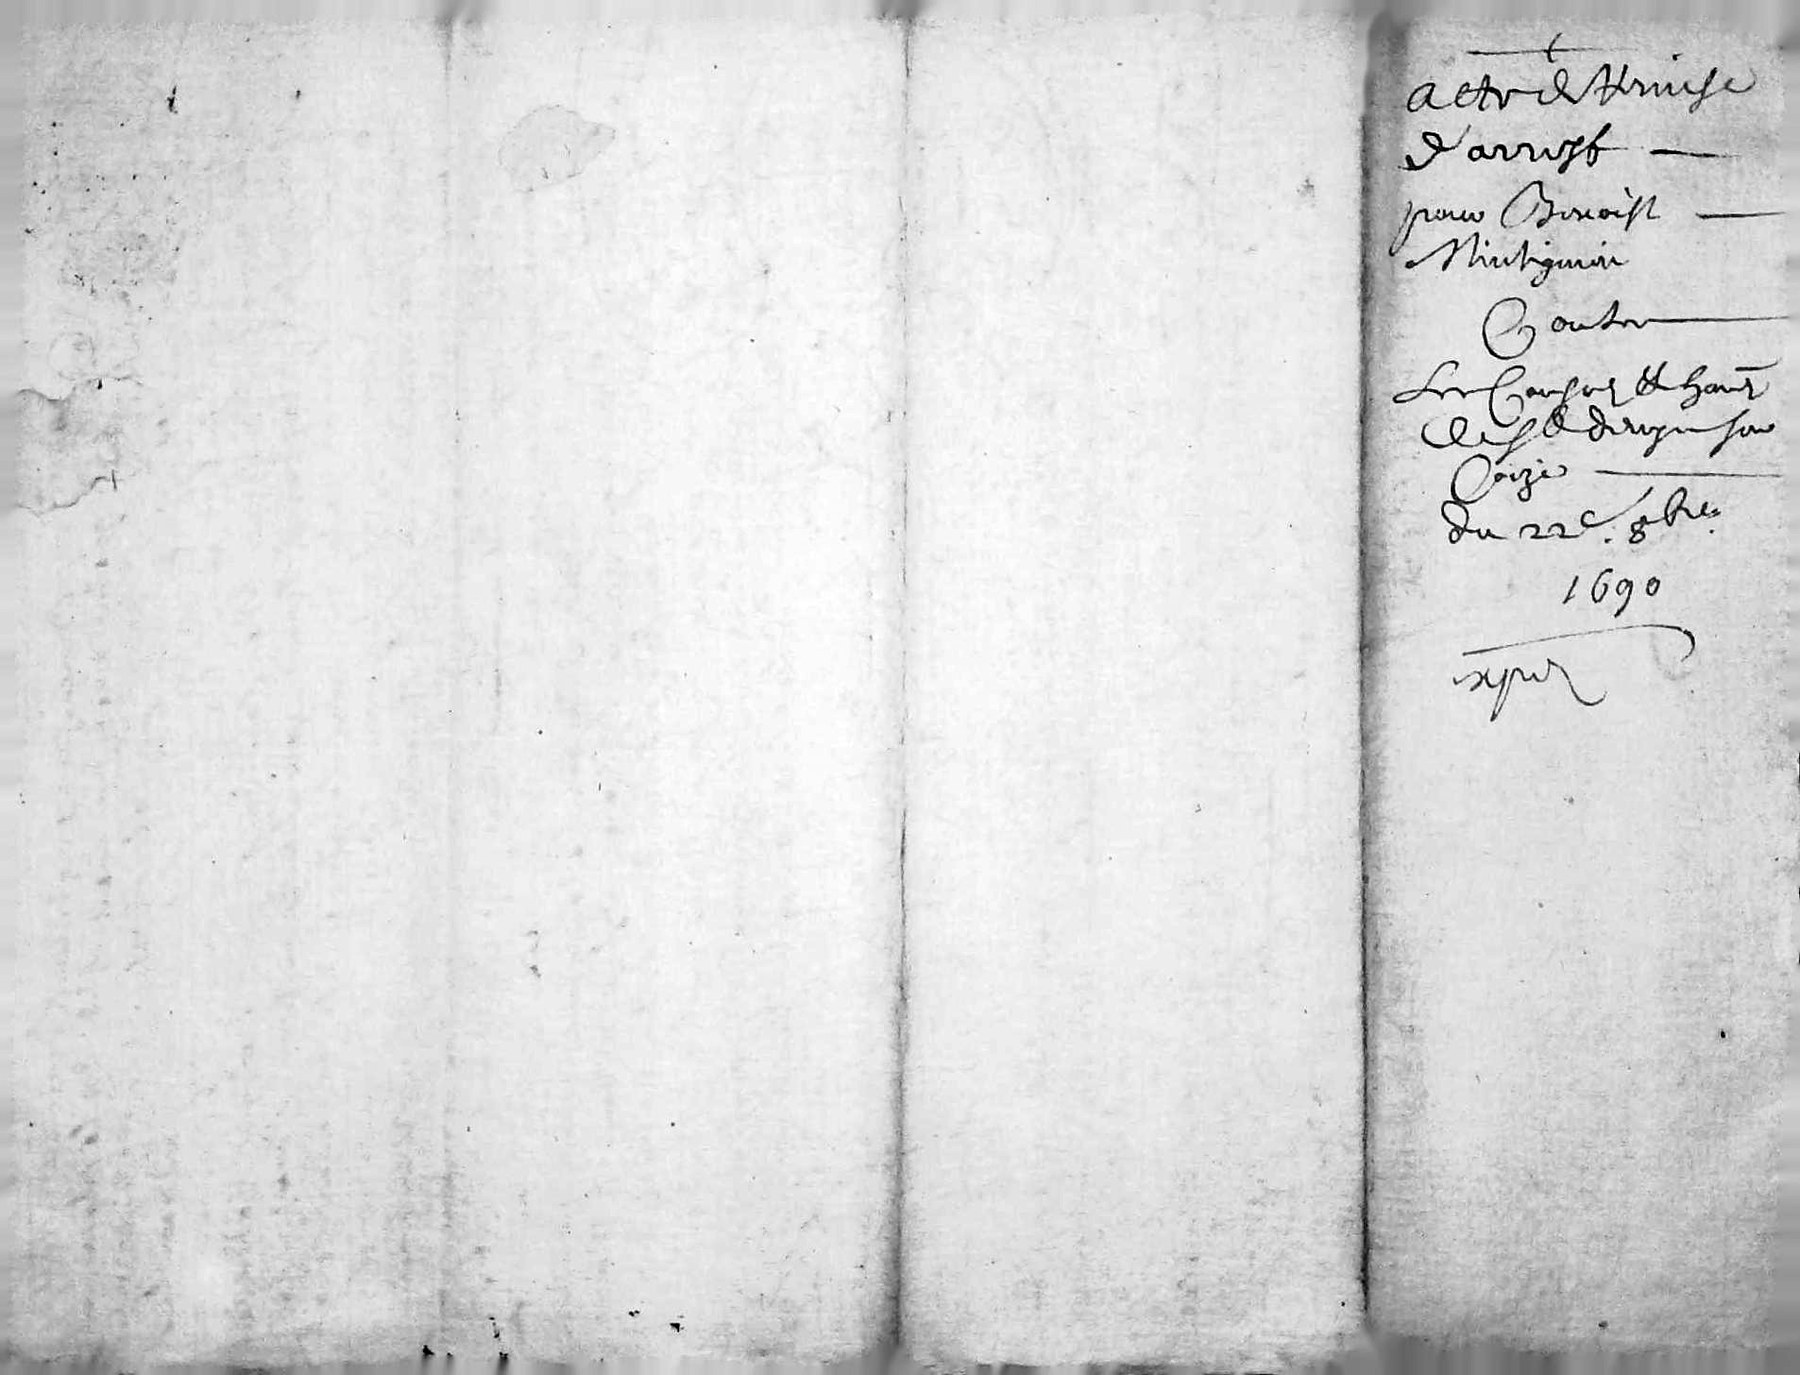 Acte de Remise
d'arrest
pour Benoist
Mintignien
Contre
Les Consors et hab
de St
Coize
du 22e. 8bre.
1690